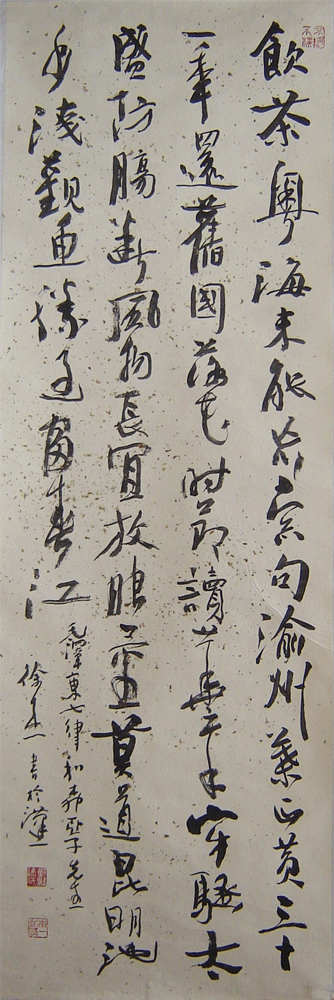 飲茶粵海未能忘索句渝州葉正黃三十
一年還舊國落花時節讀華章牢騷太
盛防腸斷風物長宜放眼量莫道昆明池
水淺觀魚勝過富春江
毛澤東七律和柳亞子先生
徐本一書於漢